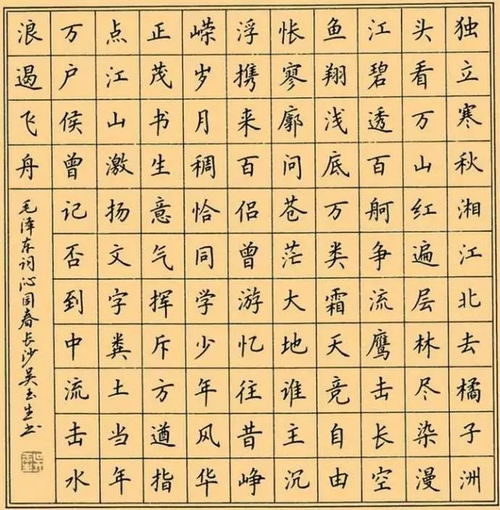 独立寒秋湘江北去橘子洲
头看万山红遍层林尽染漫
江碧透百舸争流鹰击长空
鱼翔浅底万类霜天竞自由
怅寥廓问苍茫大地谁主沉
浮携来百侣曾游忆往昔峥
嵘岁月稠恰同学少年风华
正茂书生意气挥斥方遒指
点江山激扬文字粪土当年
万户侯曾记否到中流击水
浪遏飞舟
毛泽东词沁园春长沙吴玉生书